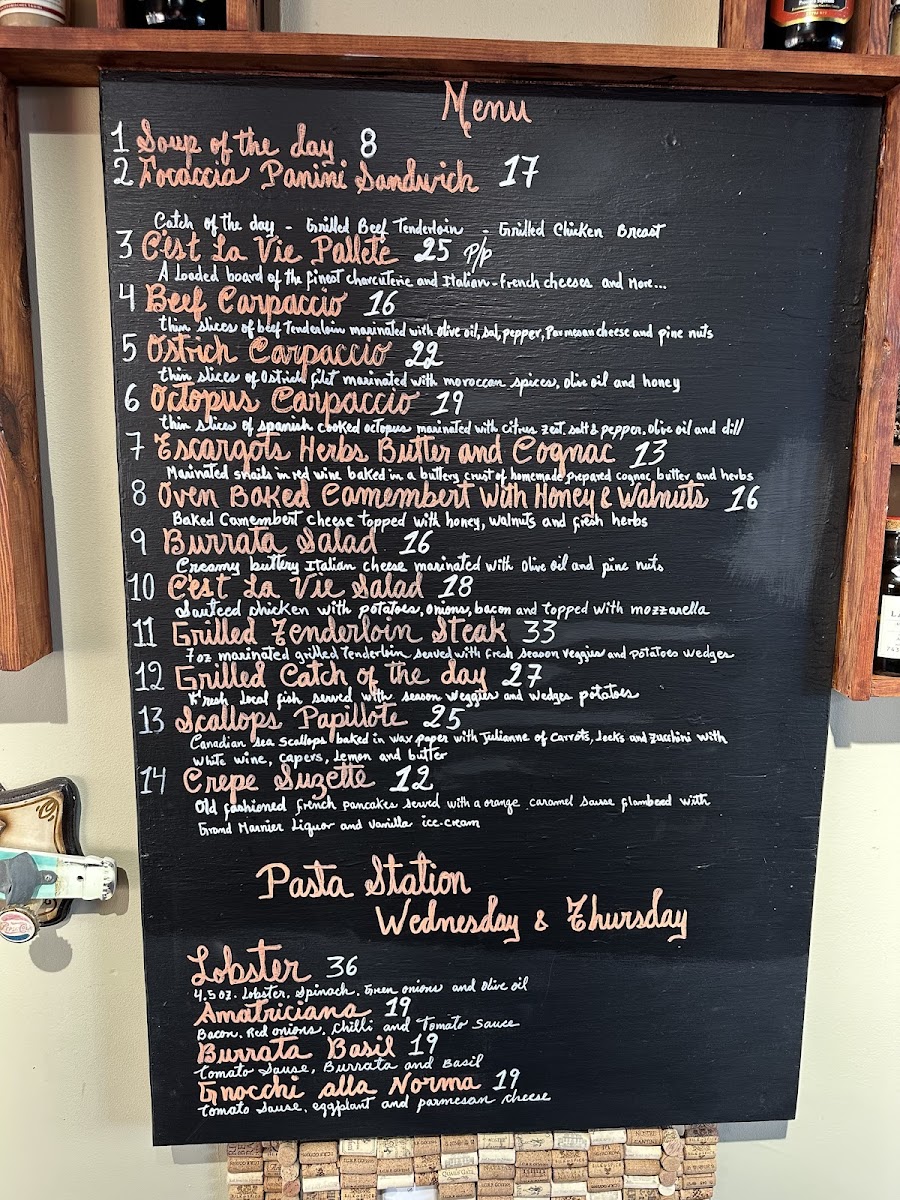 Menu
1 Soup of the day 8
2 Focaccia Panini Sandwich 17
Catch of the day - Grilled Beef Tenderloin - Grilled Chicken Breast
3 C'est La Vie Pallete 25 P/p
A Loaded board of the finest charcuterie and Italian-french cheeses and More...
4 Beef Carpaccio 16
thin slices of beef Tenderloin marinated with olive oil, sal, pepper, Parmesan cheese and pine nuts
5 Ostrich Carpaccio 22
thin slices of Ostrich filet marinated with moroccan spices, olive oil and honey
6 Octopus Carpaccio 19
thin slices of spanish cooked octopus marinated with citrus zest, salt & pepper, olive oil and dill
7 Escargots Herbs Butter and Cognac 13
Marinated snails in red wine baked in a buttery crust of homemade prepared cognac butter and herbs
8 Oven Baked Camembert With Honey & Walnuts 16
Baked Camembert cheese topped with honey, walnuts and fresh herbs
9 Burrata Salad 16
Creamy buttery Italian cheese marinated with olive oil and pine nuts
10 C'est La Vie Salad 18
Sauteed chicken with potatoes, onions, bacon and topped with mozzarella
11 Grilled Tenderloin Steak 33
7 oz marinated grilled tenderloin served with fresh season veggies and potatoes wedges
12 Grilled Catch of the day 27
Fresh local fish served with season veggies and wedges potatoes
13 Scallops Papillote 25
Canadian sea scallops baked in wax paper with julianne of carrots, leeks and zucchini with
white wine, capers, lemon and butter
14 Crepe Suzette 12
Old fashioned french pancakes served with a orange caramel sause flambeed with
Grand Marnier Liquor and vanilla ice-cream
Pasta Station
Wednesday & Thursday
Lobster 36
4.5 oz. Lobster, Spinach, Green onions and olive oil
Amatriciana 19
Bacon, Red onions, Chilli and Tomato Sauce
Burrata Basil 19
Tomato Sause, Burrata and Basil
Gnocchi alla Norma 19
tomato Sause, eggplant and parmesan cheese